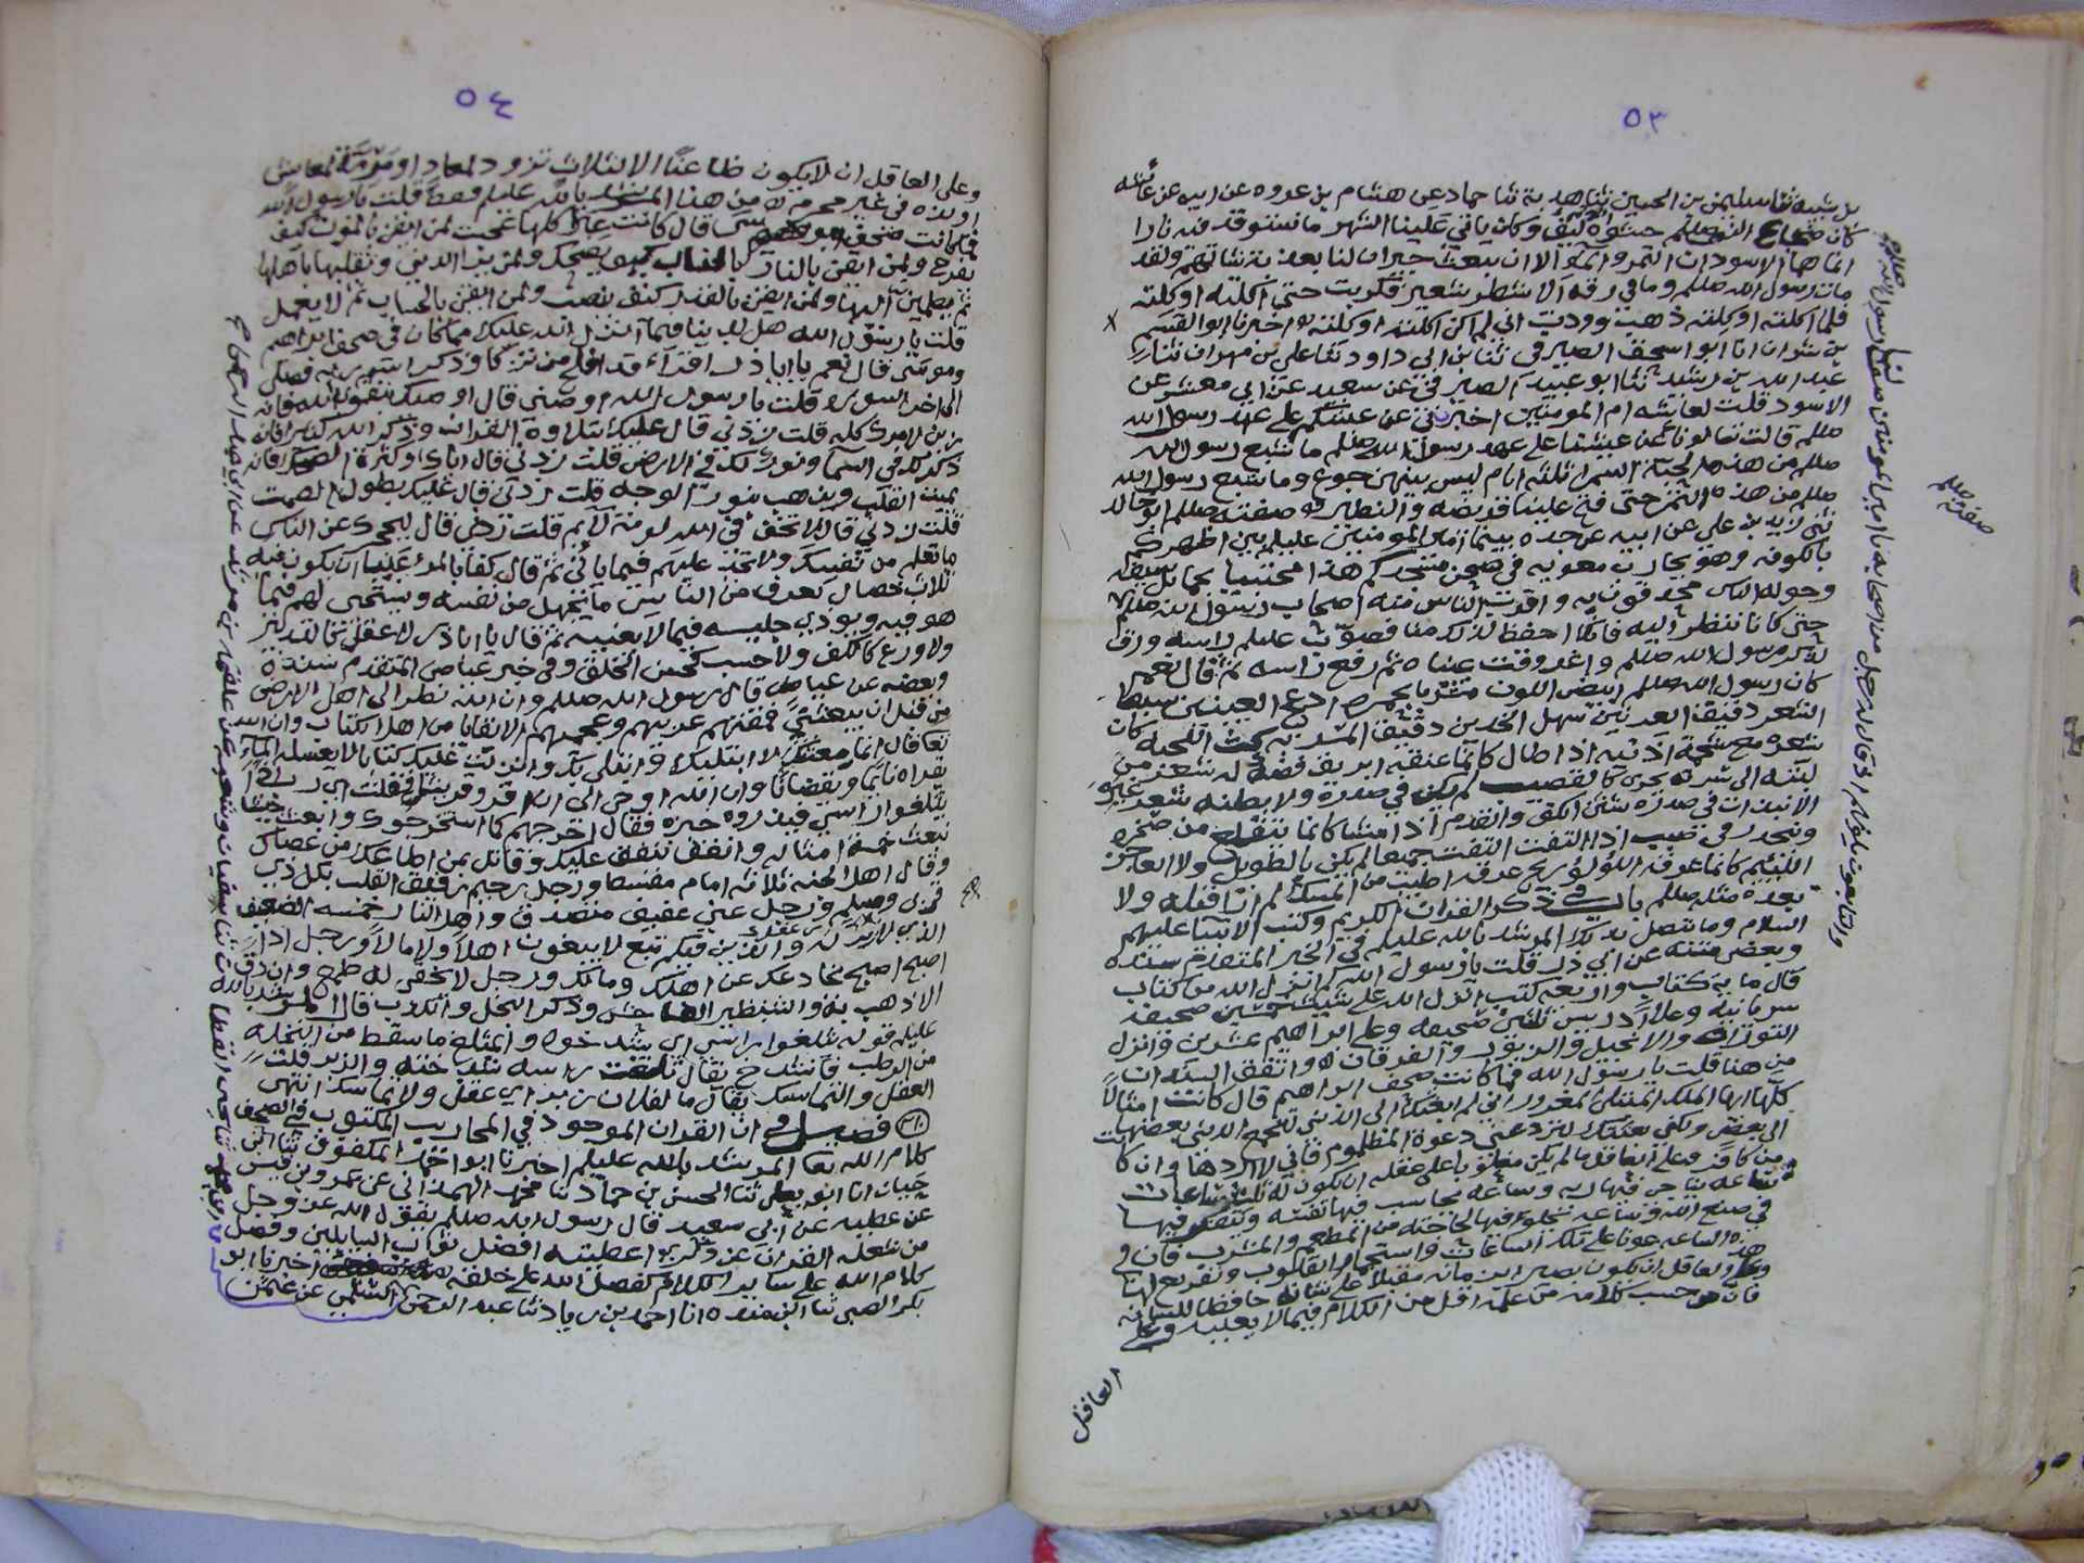 ٥٣
بن شبيه ثنا سليمن بن الحسين ثنا هدبة ثنا حماد عن هشام بن عروه عن ابيه عن عائشه
كان ضجاع النبي صلىم حشوه ليف وكان ياتي علينا الشهر ما نستوقد فيه نارا
انما هما الاسودان التمر والمآ الا ان يبعث جيران لنا بغديه شاتهم ولقد
مات رسول الله صللم وما في رفه الا شطر شعير فكريت حتى اكلته اوكلته
فلما اكلته اوكلته ذهب ووددت اني لم اكن اكلته اوكلته اخبرنا ابو القسم
بن شران انا ابو اسحق الصيرفي ثنا بن ابي داود ثنا علي بن مهران ثنا
عبد الله بن رشيد ثنا ابو عبيده الصيرفي عن سعيد عن ابي معشر عن
الاسود قلت لعايشه ام المومنين اخبريني عن عيشكم على عهد رسول الله
صللم قالت تسالونا عن عيشنا على عهد رسول الله صللم ما شبع رسول الله
صللم من هذه الحبة السمرا ثلثه ايام ليس بينهن جوع وما شبع رسول الله
صللم من هذه التمر حتى فتح علينا قريضه والنظير صفته صللم ابو خالد
ثنى زيد بن علي عن ابيه عن جده بينما امير المومنين عليلم بين اظهركم
بالكوفه وهو يحارب معويه في صحن مسجدكم هذا محتبيا بحمائل سيفه
وحوله الناس محدقون به واقرب الناس منه اصحاب رسول الله صللم
كان رسول الله صللم ابيض اللون مشربا بحمره ادعج العينين سبط
الشعر دقيق العرنين سهل الخدين دقيق المسربه كث اللحيه كان
شعره مع شحمة اذنيه اذا طال كانما عنقه ابريق فضه له شعر من
لبته الى سرته يجري كالقضيب لم يكن في صدره ولا بطنه شعر غيره
الا نبذات في صدره شثن الكف والقدم اذا مشا كانما يتقلع من صخره
وينحدر في صبب اذا التفت التفت جميعا لم يكن بالطويل ولا العاجز
اللئيم كانما عرقه اللؤلؤ ريح عرقه اطيب من المسك لم ار قبله ولا
بعده مثله صللم باب في ذكر القران الكريم وكتب الانبيا عليهم
السلام وما يتصل بذلك المرشد بالله عليلم في الخبر المتقدم سنده
وبعض متنه عن ابي ذر قلت يا رسول الله كم انزل الله من كتاب
قال ما ية كتاب واربعه كتب انزل الله على شيث خمسين صحيفه
سريانيه وعلى ادريس ثلثين صحيفه وعلى ابراهيم عشرين وانزل
التوراه والانجيل والزبور والفرقان
من هنا قلت يا رسول الله فما كانت صحف ابراهيم قال كانت امثالا
كلها ايها الملك المبتلى المغرور اني لم ابعثك الى الدنيا لتجمع الدنيا بعضها
الى بعض ولكني بعثتك لترد عني دعوة المظلوم فاني لا اردها وان كانت
من كافر وعلى العاقل ما لم يكن مغلوبا على عقله ان يكون له ثلث ساعات
ساعه يناجي فيها ربه وساعه يحاسب فيها نفسه ويتفكر فيها
في صنع الله وساعه يخلو فيها لحاجته من المطعم والمشرب فان في
هذه الساعه عونا على تلك الساعات واستجمام القلوب وتفريع لها
وعلى العاقل ان يكون بصيرا بزمانه مقبلا على شانه حافظا للسانه
فان من حسب كلامه من عمله اقل من الكلام فيما لا يعنيه وعلى
العاقل
صفته صللم
٥٤
وعلى العاقل ان لا يكون ظاعنا الا لثلاث تزود لمعاد او مرمة لمعاش
او لذه في غير محرم
يفرح ولمن ايقن بالنار كيف يضحك ولمن يرا الدنيا وتقلبها باهلها
ثم يطمئن اليها ولمن ايقن بالقدر كيف ينصب ولمن ايقن بالحساب ثم لا يعمل
قلت يا رسول الله هل لدينا فيما انزل الله عليك مما كان في صحف ابراهيم
وموسى قال نعم يا ابا ذر اقراء قد افلح من تزكا وذكر اسم ربه فصلى
الى اخر السوره قلت يا رسول الله اوصني قال اوصيك بتقوى الله فانه
زين لامرك كله قلت زدني قال عليك بتلاوة القران وذكر الله كثيرا فانه
ذكر لك في السمآ ونور لك في الارض قلت زدني قال اياك وكثرة الضحك فانه
يميت القلب ويذهب بنور الوجه قلت زدني قال عليك بطول الصمت
قلت زدني قال لا تخف في الله لومة لآئم قلت زدني قال ليحجزك عن الناس
ما تعلم من نفسك ولا تجد عليهم فيما ياتي ثم قال كفا بالمرء عيبا ان يكون فيه
ثلاث خصال يعرف من الناس ما يجهل من نفسه ويستحي لهم فيما
هو فيه ويوذي جليسه فيما لا يعنيه ثم قال يا ابا ذر لا عقل كالتدبير
ولا ورع كالكف ولا حسب كحسن الخلق وفي خبر عياض المتقدم سنده
وبعضه عن عياض قال رسول الله صللم وان الله نظر الى اهل الارض
من قبل ان يبعثني فمقتهم عربهم وعجمهم الا بقايا من اهل الكتاب وان الله
تعا قال انما بعثتك لابتليك وابتلي بك وانزلت عليك كتابا لا يغسله المآء
تقراه نايما ويقضانا وان الله اوحى الى ان اقرو قريشا فقلت اي رب اذا
يثلغوا راسي فيذروه خبزه فقال اخرجهم كما استخرجوك وابعث جيشا
نبعث خمسة امثاله وانفق ننفق عليك وقاتل بمن اطاعك من عصاك
وقال اهل الجنه ثلاثه امام مقسط ورجل رحيم رقيق القلب بكل ذي
قربى ومسلم ورجل غني عفيف متصدق واهل النار خمسه الضعيف
اصبح اصبح يخادعك عن اهلك ومالك ورجل لا يخفى له طمع وان دق
الا ذهب به والشنظير الفاحش وذكر البخل والكذب قال المرشد بالله
عليلم قوله يثلغوا راسي اي يشدخوه والمثلغ ما سقط من النخله
من الرطب فانشدخ يقال ثلغت راسه شدخته والزبر قلت
العقل والتماسك يقال ما لفلان زبر اي عقل ولا تماسك انتهى
فصل في ان القران الموجود في المحاريب المكتوب في المصحف
كلام الله تعا المرشد بالله عليلم اخبرنا ابو احمد المكفوف ثنا ابن
حيان انا ابو يعلى ثنا الحسن بن حماد ثنا محمد الهمذاني عن عمرو بن قيس
عن عطيه عن ابي سعيد قال رسول الله صللم يقول الله عز وجل
من شغله القران عن ذكري اعطيته افضل ثواب السايلين وفضل
كلام الله على ساير الكلام كفضل الله على خلقه اخبرنا ابو
بكر الصبي ثنا ابن منده انا احمد بن زياد ثنا عبد الرحمن السلمي عن عثمن